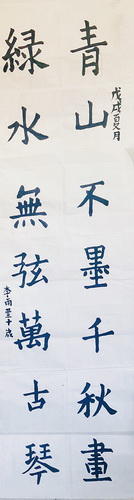 青山不墨千秋畫
戊戌夏月
綠水無弦萬古琴
李雨萱十歲